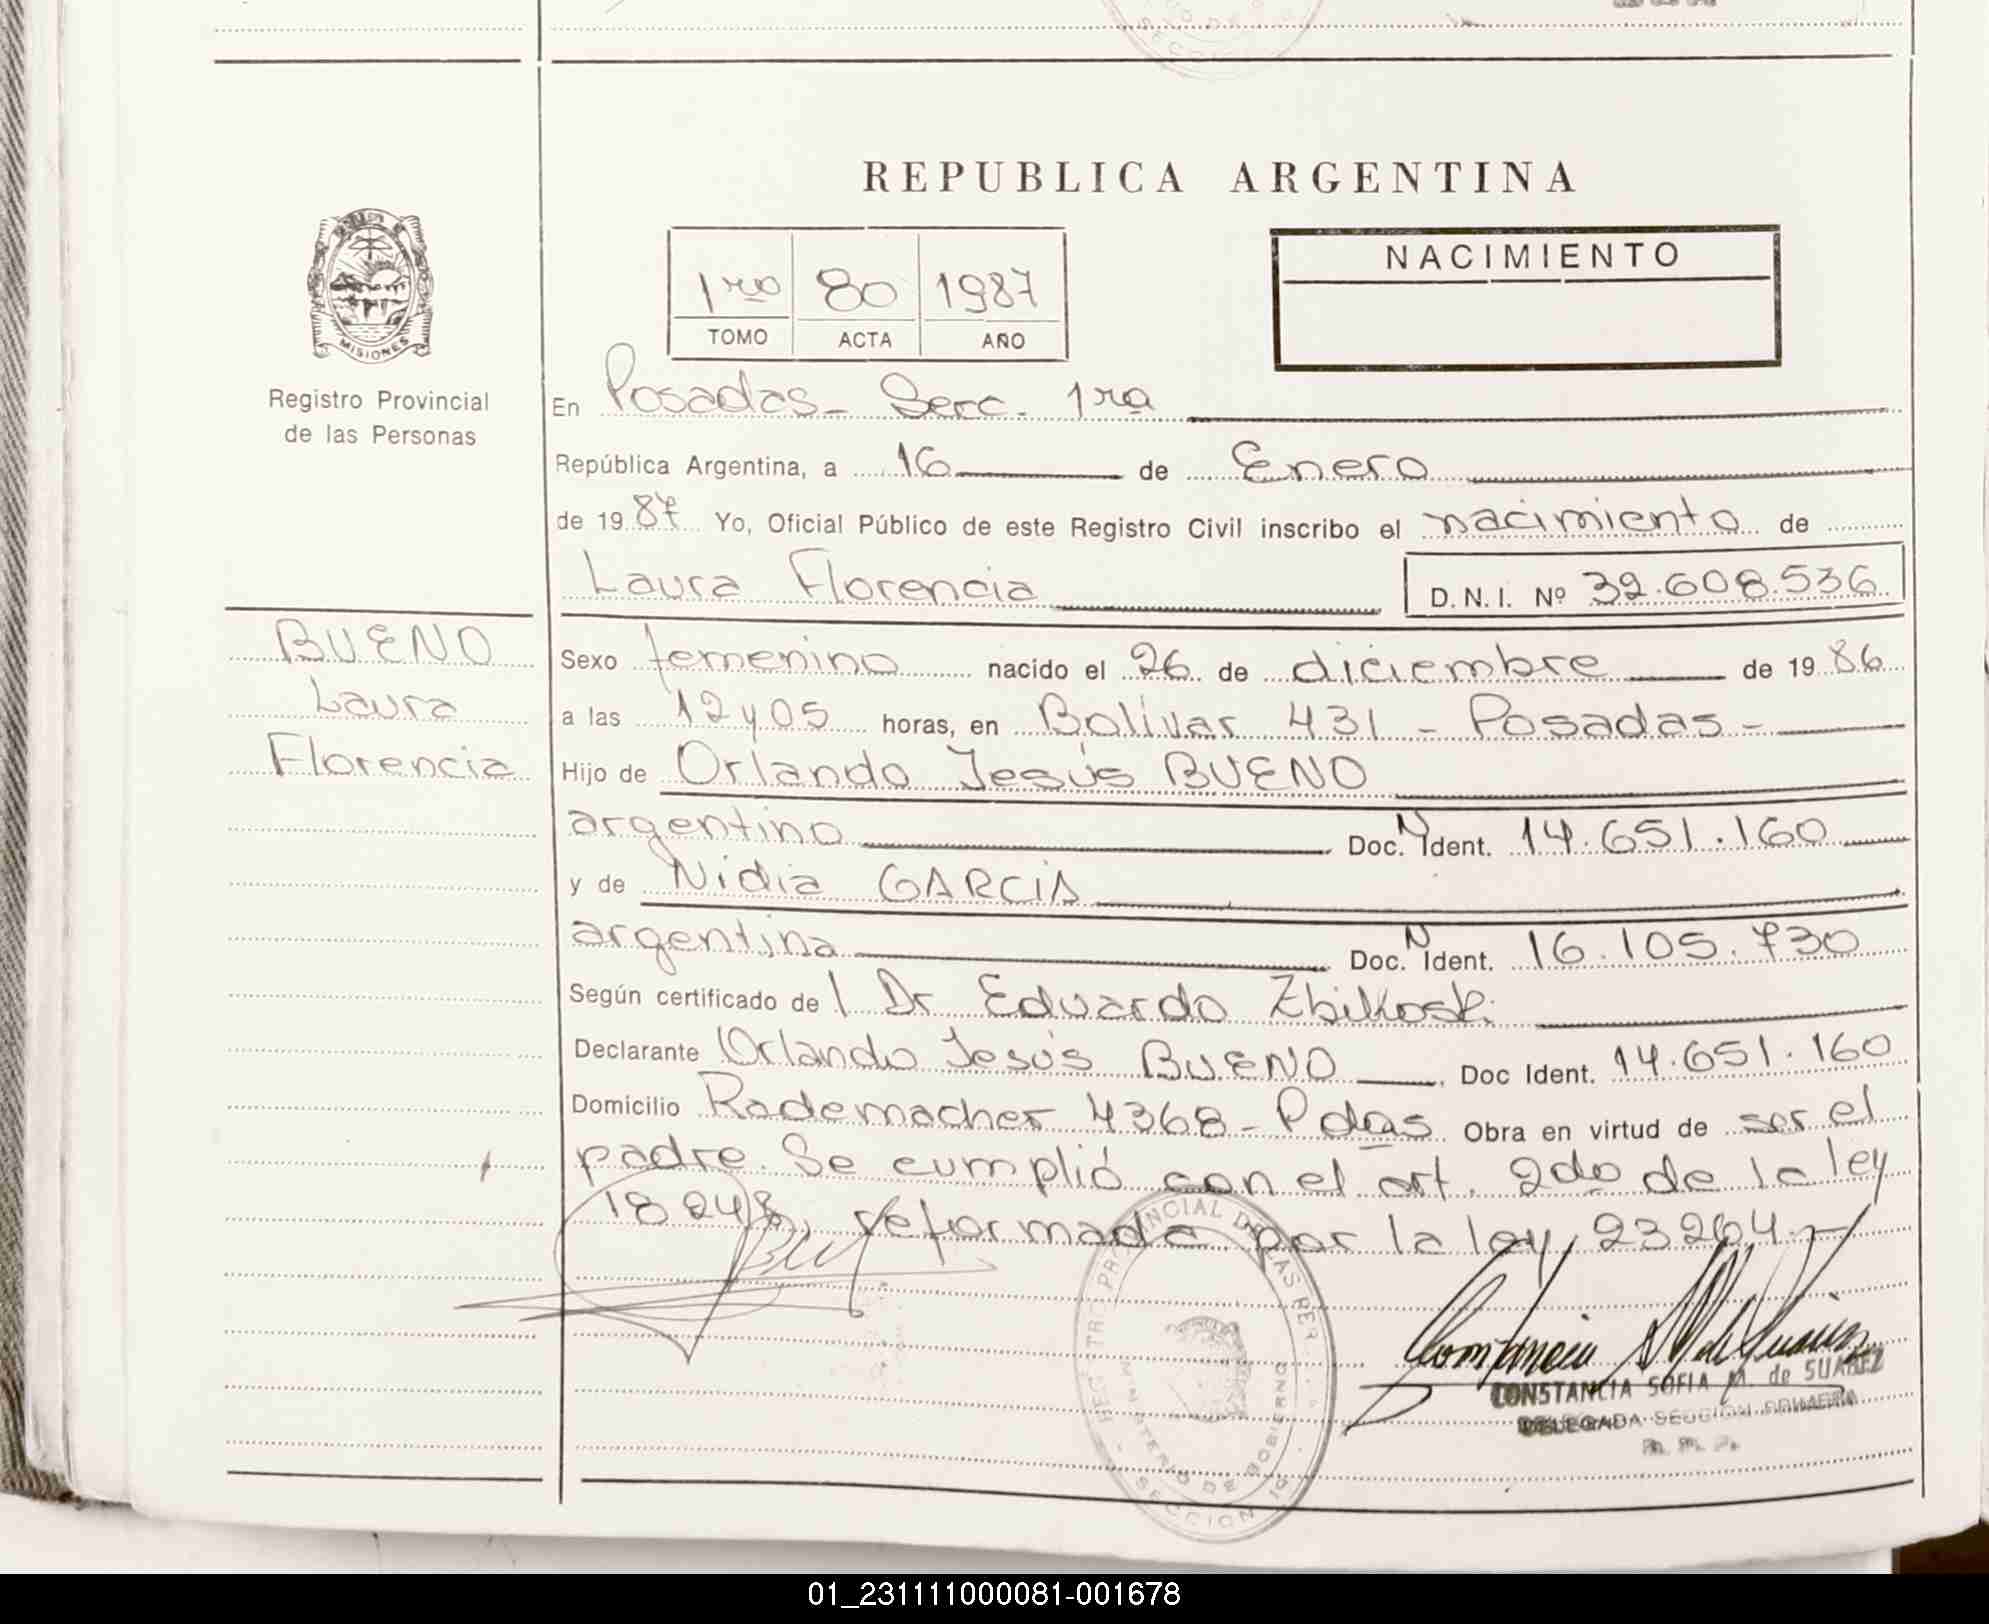 REPUBLICA ARGENTINA
MISIONES
Registro Provincial
de las Personas
1ro 80 1987
TOMO ACTA AÑO
NACIMIENTO
En Posadas - Secc. 1ra
República Argentina, a 16 de Enero
de 1987 Yo, Oficial Público de este Registro Civil inscribo el nacimiento de
Laura Florencia D.N.I. Nº 32.608.536
BUENO
Laura
Florencia
Sexo femenino nacido el 26 de diciembre de 1986
a las 12 y 05 horas, en Bolívar 431 - Posadas -
Hijo de Orlando Jesús BUENO
argentino Doc. N Ident. 14.651.160
y de Nidia GARCIA
argentina Doc. N Ident. 16.105.730
Según certificado de l Dr Eduardo Zbikoski
Declarante Orlando Jesús BUENO Doc Ident. 14.651.160
Domicilio Rademacher 4368 - Pdas Obra en virtud de ser el
padre. Se cumplió con el art. 2do de la ley
18248, reformada por la ley 23264.-
REGISTRO PROVINCIAL DE LAS PER
MINISTERIO DE GOBIERNO
SECCION 1º
CONSTANCIA SOFIA M. de SUAREZ
DELEGADA SECCION PRIMERA
01_231111000081-001678